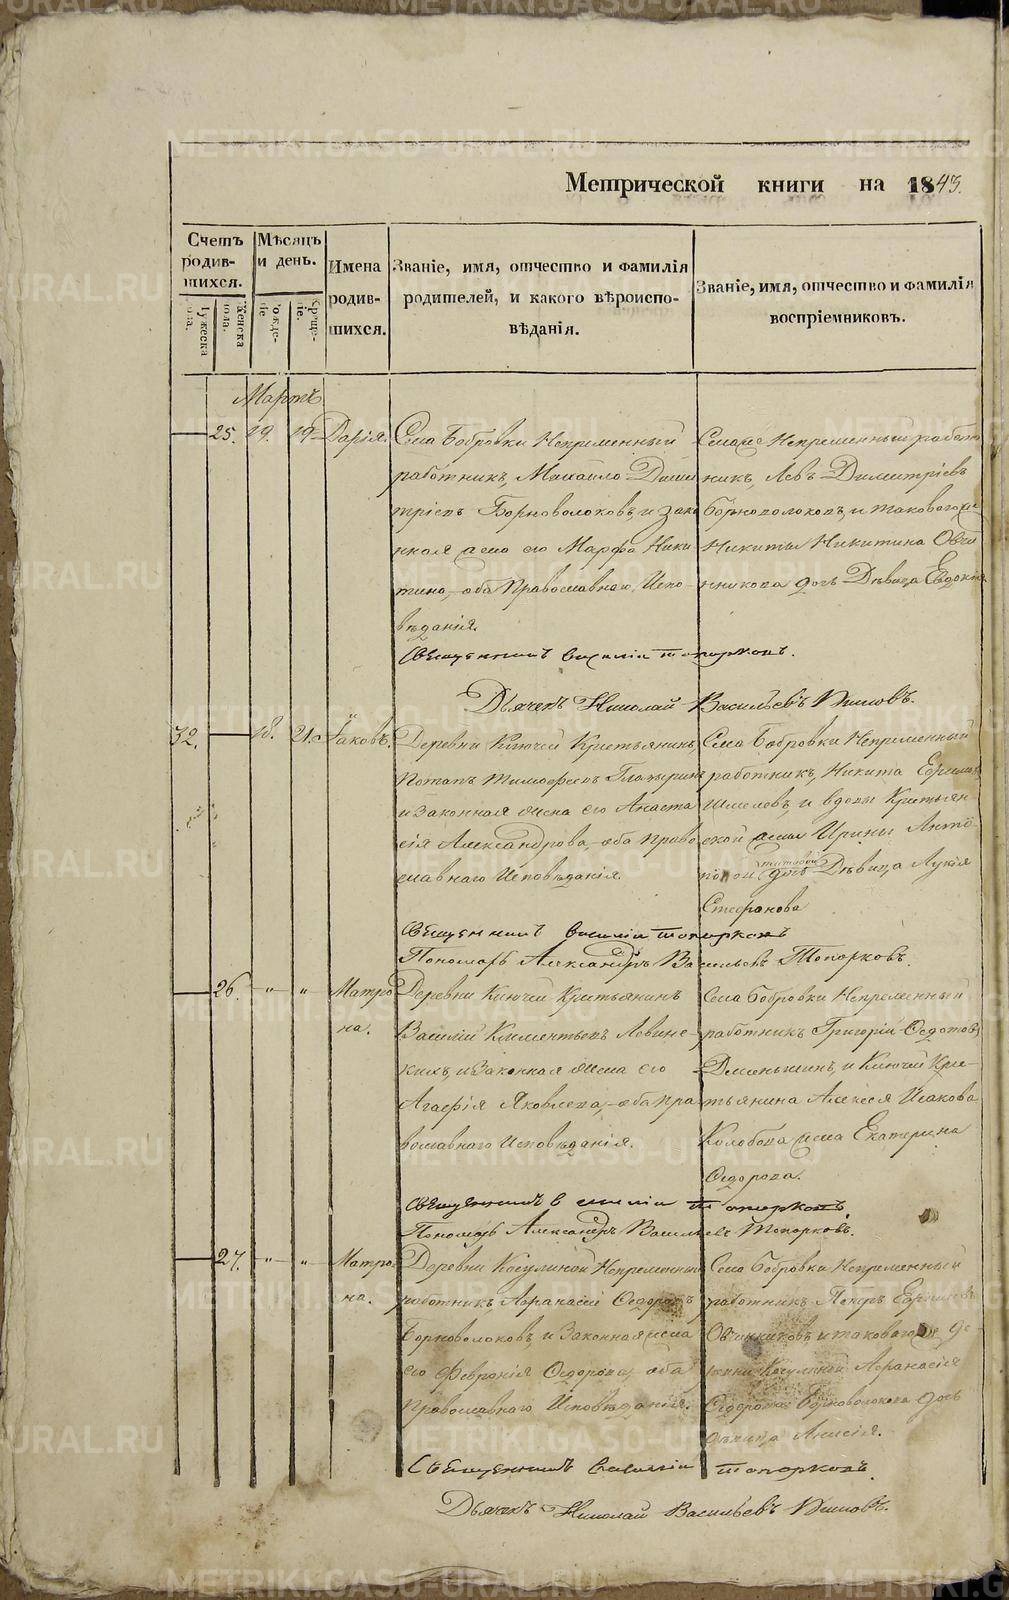 Метрической книги на 1843.
Счетъ родив-шихся.
Мѣсяцъ и день.
Имена родив-шихся.
Званіе, имя, отчество и фамилія родителей, и какого вѣроиспо-вѣданія.
Званіе, имя, отчество и фамилія воспріемниковъ.
Мужеска пола.
Женска пола.
Рожде-ніе.
Креще-ніе.
Мартъ
25. 19. 19. Дарія.
Села Бобровки Непременный
работникъ, Михайло Дими
тріевъ Борноволоковъ, и зако
нная жена его Марфа Ники
тина, оба Православнаго Испо-
вѣданія.
Селаже Непременный работ
никъ, Левъ Димитріевъ
Борноволоковъ, и таковагоже
Никиты Никитина Овчи
нникова дочь Дѣвица Евдокія
Священникъ Василій Топорковъ.
Дьячекъ Николай Васильевъ
32. 18. 21. Іаковъ.
Деревни Ключей Крестьянинъ
Потапъ Тимофеевъ Глазыринъ
и Законная жена его Анаста
сія Александрова, оба Право
славнаго Исповѣданія.
Села Бобровки Непременный
работникъ, Никита Ефимовъ
Шмелевъ, и вдовы Крестьян-
ской жены Ирины Анто-
повой дочь Дѣвица Лукія
Стефанова
Священникъ Василій Топорковъ
Пономарь Александръ Васильевъ Топорковъ.
26. " " Матро
на.
Деревни Ключей Крестьянинъ
Василій Климентьевъ Левинс-
кихъ, и Законная жена его
Агафія Яковлева, оба Пра
вославнаго Исповѣданія.
Села Бобровки Непременный
работникъ Григорій Федотовъ
Деменьшинъ, и Ключей Кре-
стьянина Алексея Исакова
Колобова жена Екатерина
Федорова.
Священникъ Василій Топорковъ.
Пономарь Александръ Васильевъ Топорковъ.
27. " " Матро
на.
Деревни Косулиной Непременный
работникъ Афанасій Федоровъ
Борноволоковъ, и Законная жена
его Февронія Федорова, оба
Православнаго Исповѣданія.
Села Бобровки Непременный
работникъ Петръ Ефимовъ
Овчинниковъ, и таковагоже де-
ревни Косулиной Афанасія
Федорова Борноволокова дочь
дѣвица Анисія.
Священникъ Василій Топорковъ.
Дьячекъ Николай Васильевъ
METRIKI.GASO-URAL.RU